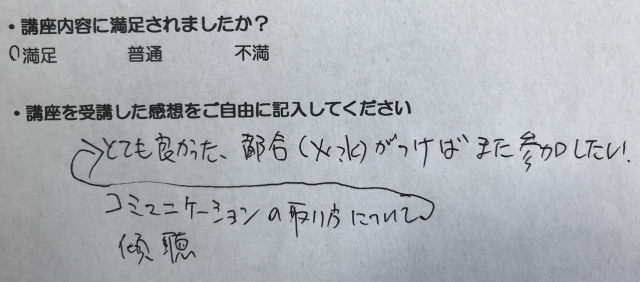 ・講座内容に満足されましたか？
○満足 普通 不満
・講座を受講した感想をご自由に記入してください
とても良かった、都合(火、水)がつけばまた参加したい。
コミュニケーションの取り方について
傾聴